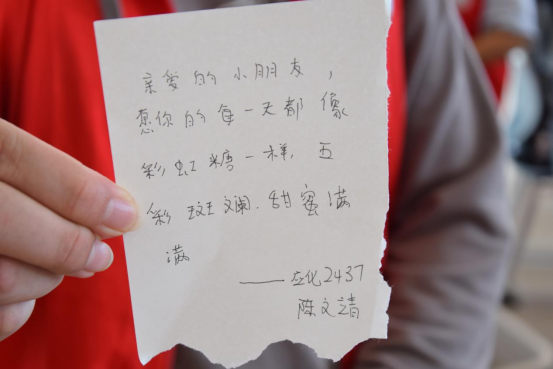 亲爱的小朋友，
愿你的每一天都像
彩虹糖一样，五
彩斑斓.甜蜜满
满
——应化2437
陈文靖